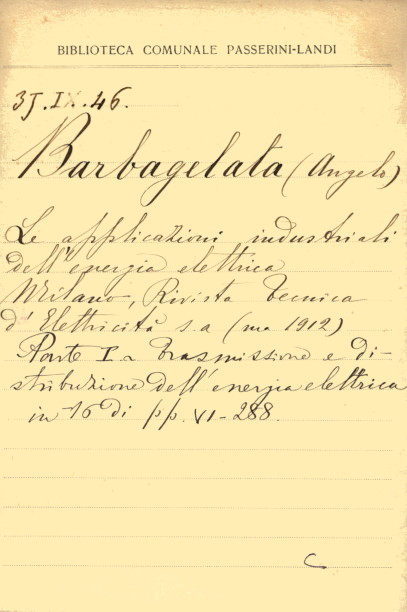 BIBLIOTECA COMUNALE PASSERINI-LANDI
3J.IX.46.
Barbagelata (Angelo)
Le applicazioni industriali
dell'energia elettrica
Milano, Rivista Tecnica
d'Elettricità s a (ma 1912)
Parte I a Trasmissione e di-
stribuzione dell'energia elettrica
in 16 di pp. VI-288.
C